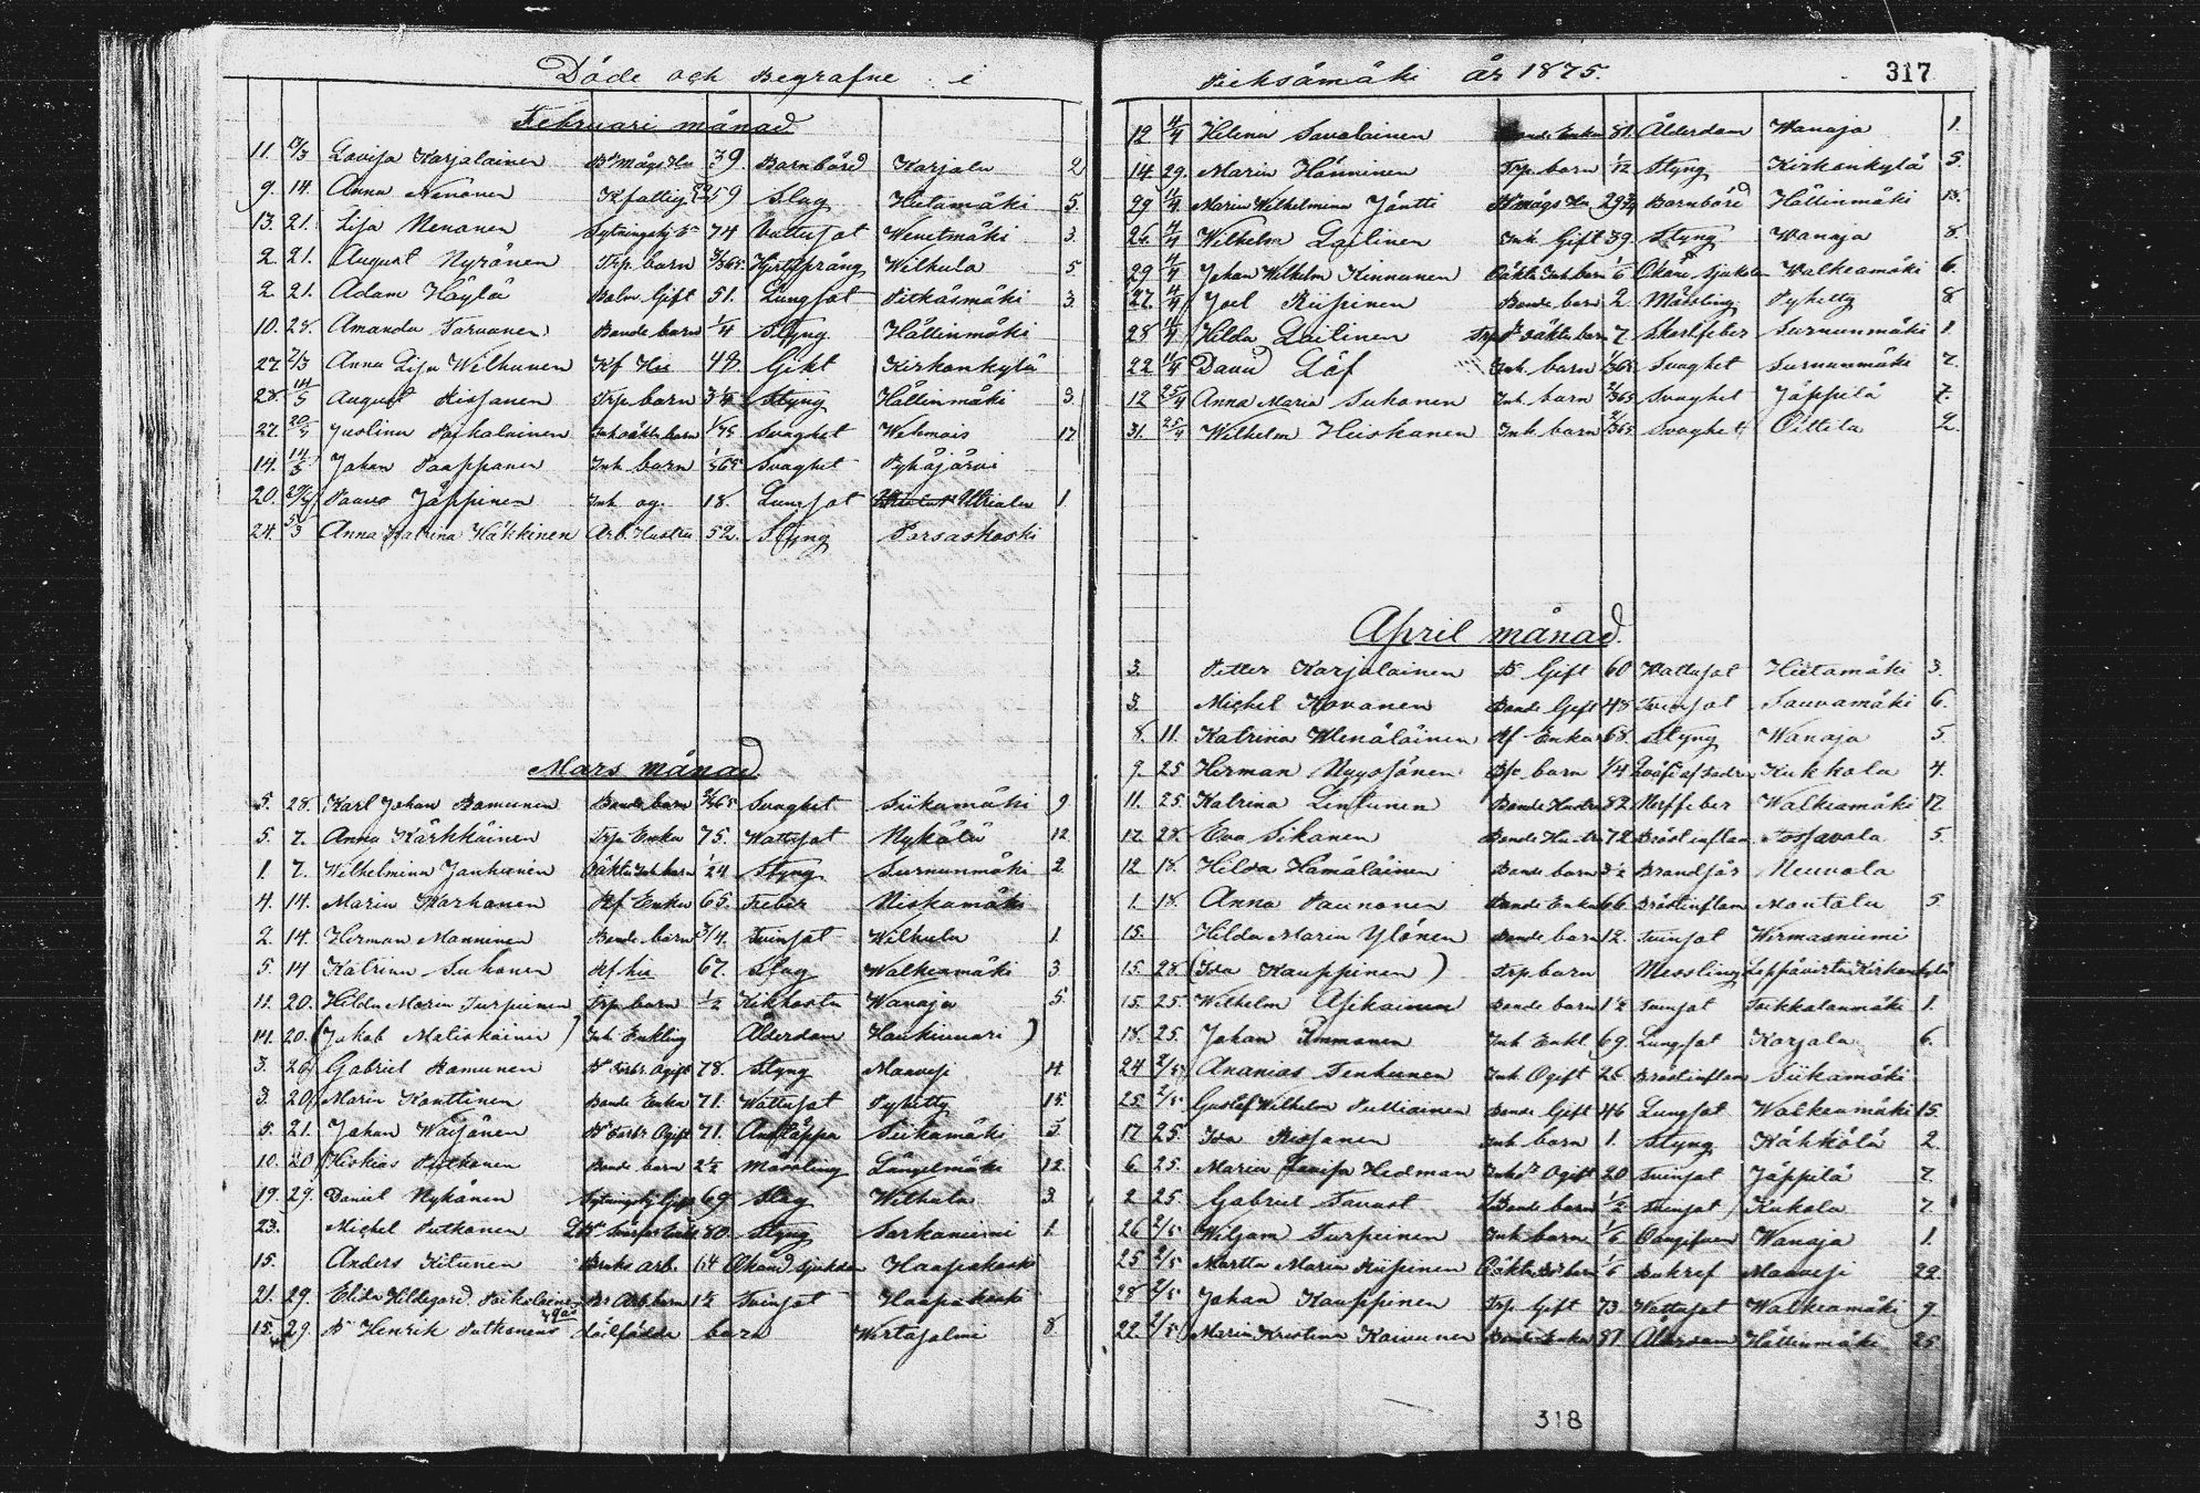 Döde och Begrafne i
Februari månad
11. 14/3 Lovisa Karjalainen Bd Mågs Hu 39. Barnbörd Karjala 2
9. 14. Anna Nenonen Kf fattig 59 Slag Hietamäki 5.
13. 21. Lisa Nenonen Sytningshj. 74 Vattusot Wenetmäki 3.
2. 21. August Nyrönen Trp. barn 3/365 Hjertsprång Wilhula 5.
2. 21. Adam Häylä Bolm. Gift 51. Lungsot Pitkäsmäki 3.
10. 28. Amanda Tarvanen Bonde barn 1/4 Styng Hällinmäki
27. 7/3 Anna Lisa Wilhunen Kf Hu 48. Gikt Kirkonkylä
28. 14/3 August Rissanen Trp. barn 3 1/2 Styng Hällinmäki 3.
27. Justina Poikolainen Inh oäkta barn Svaghet Wehmais 17
14. 14/3 Johan Paappanen Inh. barn 1/365 Svaghet Pyhäjärvi
20. Paavo Jäppinen Inh. og. 18. Lungsot Utriala 1.
24. Anna Katrina Häkkinen Arb. Hustru 52. Styng Porsaskoski
Mars månad
5. 28. Karl Johan Ramunen Bonde barn 2/365 Svaghet Siikamäki 9
5. 7. Anna Kärkkäinen Trp. Enka 75. Wattusot Nykälä 12.
1. 7. Wilhelmina Janhunen Oäkta Inh. barn 1/24 Styng Surnunmäki 2.
4. 14. Maria Karhanen Kf Enka 65. Feber Niskamäki
2. 14. Herman Manninen Bonde barn 3/4. Tvinsot Wilhula 1.
5. 14 Katrina Suhonen Kf hu 67. Slag Walkeamäki 3
11. 20. Hilda Maria Turpeinen Trp. barn 1/2 Kikhosta Wanaja 5.
14. 20. (Jakob Matiskainen) Inh. Enkling Ålderdom Haukivuori )
3. 20. Gabriel Ramunen Bd Torbr. Ogift 78. Styng Maavesi 4.
3. 20. Maria Konttinen Bonde Enka 71. Wattusot Pyhitty 15.
5. 21. Johan Waisänen Bd Torbr Ogift 71. Andtäppa Siikamäki 3.
10. 20 Hiskias Putkonen Bonde barn 2 1/2 Mässling Längelmäki 12.
19. 29. Daniel Nykänen Sytningshj Gift 69. Slag Wilhula 3.
23. Michel Putkonen Bd Svärfar Enkl. 80. Styng Sarkaniemi 1.
15. Anders Kitunen Bruks arb. 64 Okänd sjukdom Haapakoski
21. 29. Elida Hildegard Poikolainen Br Arb. barn 1 1/2 Tvinsot Haapakoski
15. 29. Bd Henrik Putkonens dödfödda barn Wirtasalmi 8.
Pieksämäki år 1875. 317
12 4/4 Helena Savolainen Bonde Enka 81. Ålderdom Wanaja 1.
14. 29. Maria Hänninen Trp. barn 1/12 Styng Kirkonkylä 5.
29 11/4 Maria Wilhelmina Jäntti Bd mågs Hu 29 Barnbörd Hällinmäki 13.
26. 4/4 Wilhelm Laitinen Inh. Gift 39. Styng Wanaja 8.
29 4/4 Johan Wilhelm Kinnunen Oäkta Inh. barn 1/6 Okänd sjukdom Walkeamäki 6.
27. 4/4 Joel Riipinen Bonde barn 2. Mässling Pyhitty 8.
28 11/4 Hilda Laitinen oäkta barn 7. Skarlfeber Surnunmäki 1.
22 11/4 David Löf Inh. barn 1/365 Svaghet Surnunmäki 7.
12 25/4 Anna Maria Suhonen Inh. barn 2/365 Svaghet Jäppilä 7.
31. 25/4 Wilhelm Hiiskanen Inh. barn 2/365 Svaghet Oittila 2.
April månad.
3. Petter Karjalainen Bd Gift 60 Wattusot Hietamäki 3.
3. Michel Kovanen Bonde Gift 48 Tvinsot Sauvamäki 6.
8. 11. Katrina Wenäläinen Kf Enka 68. Styng Wanaja 5.
9. 25 Herman Nyyssönen barn 1/4 Kukkola 4.
11. 25. Katrina Lintunen Bonde Hustru 32. Nerffeber Walkeamäki 17.
12. 28. Eva Sikanen Bonde Hustru 72 Bröstinflam Tossavala 5.
12 18. Hilda Hämäläinen Bonde barn 3 1/2 Brandsår Neuvola
1. 18. Anna Paunonen Bonde Enka 66. Bröstinflam Montola 5.
15. Hilda Maria Ylönen Bonde barn 12. Tvinsot Wirmasniemi
15. 28 (Ida Kauppinen) Trp. barn Messling Leppävirta Kirkonkylä
15. 25. Wilhelm Asikainen Bonde barn 1 1/2 Tvinsot Toikkalanmäki 1.
18. 25. Johan Immonen Inh. Enkl 69. Lungsot Karjala 6.
24 2/5 Ananias Tenhunen Inh. Ogift 26 Bröstinflam Siikamäki
25. 2/5 Gustaf Wilhelm Pulliainen Bonde Gift 46 Lungsot Walkeamäki 15.
17 25. Ida Rissanen Inh. barn 1. Styng Kähkölä 2.
6. 25. Maria Lovisa Hedman Ogift 20 Tvinsot Jäppilä 7.
2 25. Gabriel Tavast Bonde barn 1/2 Tvinsot Kukola 7.
26 2/5 Wiljam Turpeinen Inh. barn 1/6 Oangifven Wanaja 1.
25 2/5 Martta Maria Riipinen Oäkta barn 1/6 Bukref Maavesi 22.
28 2/5 Johan Kauppinen Trp. Gift 73 Wattusot Walkeamäki 9.
22. 2/5 Maria Kristina Kaivunen Bonde Enka 87 Ålderdom Hällinmäki 25.
318